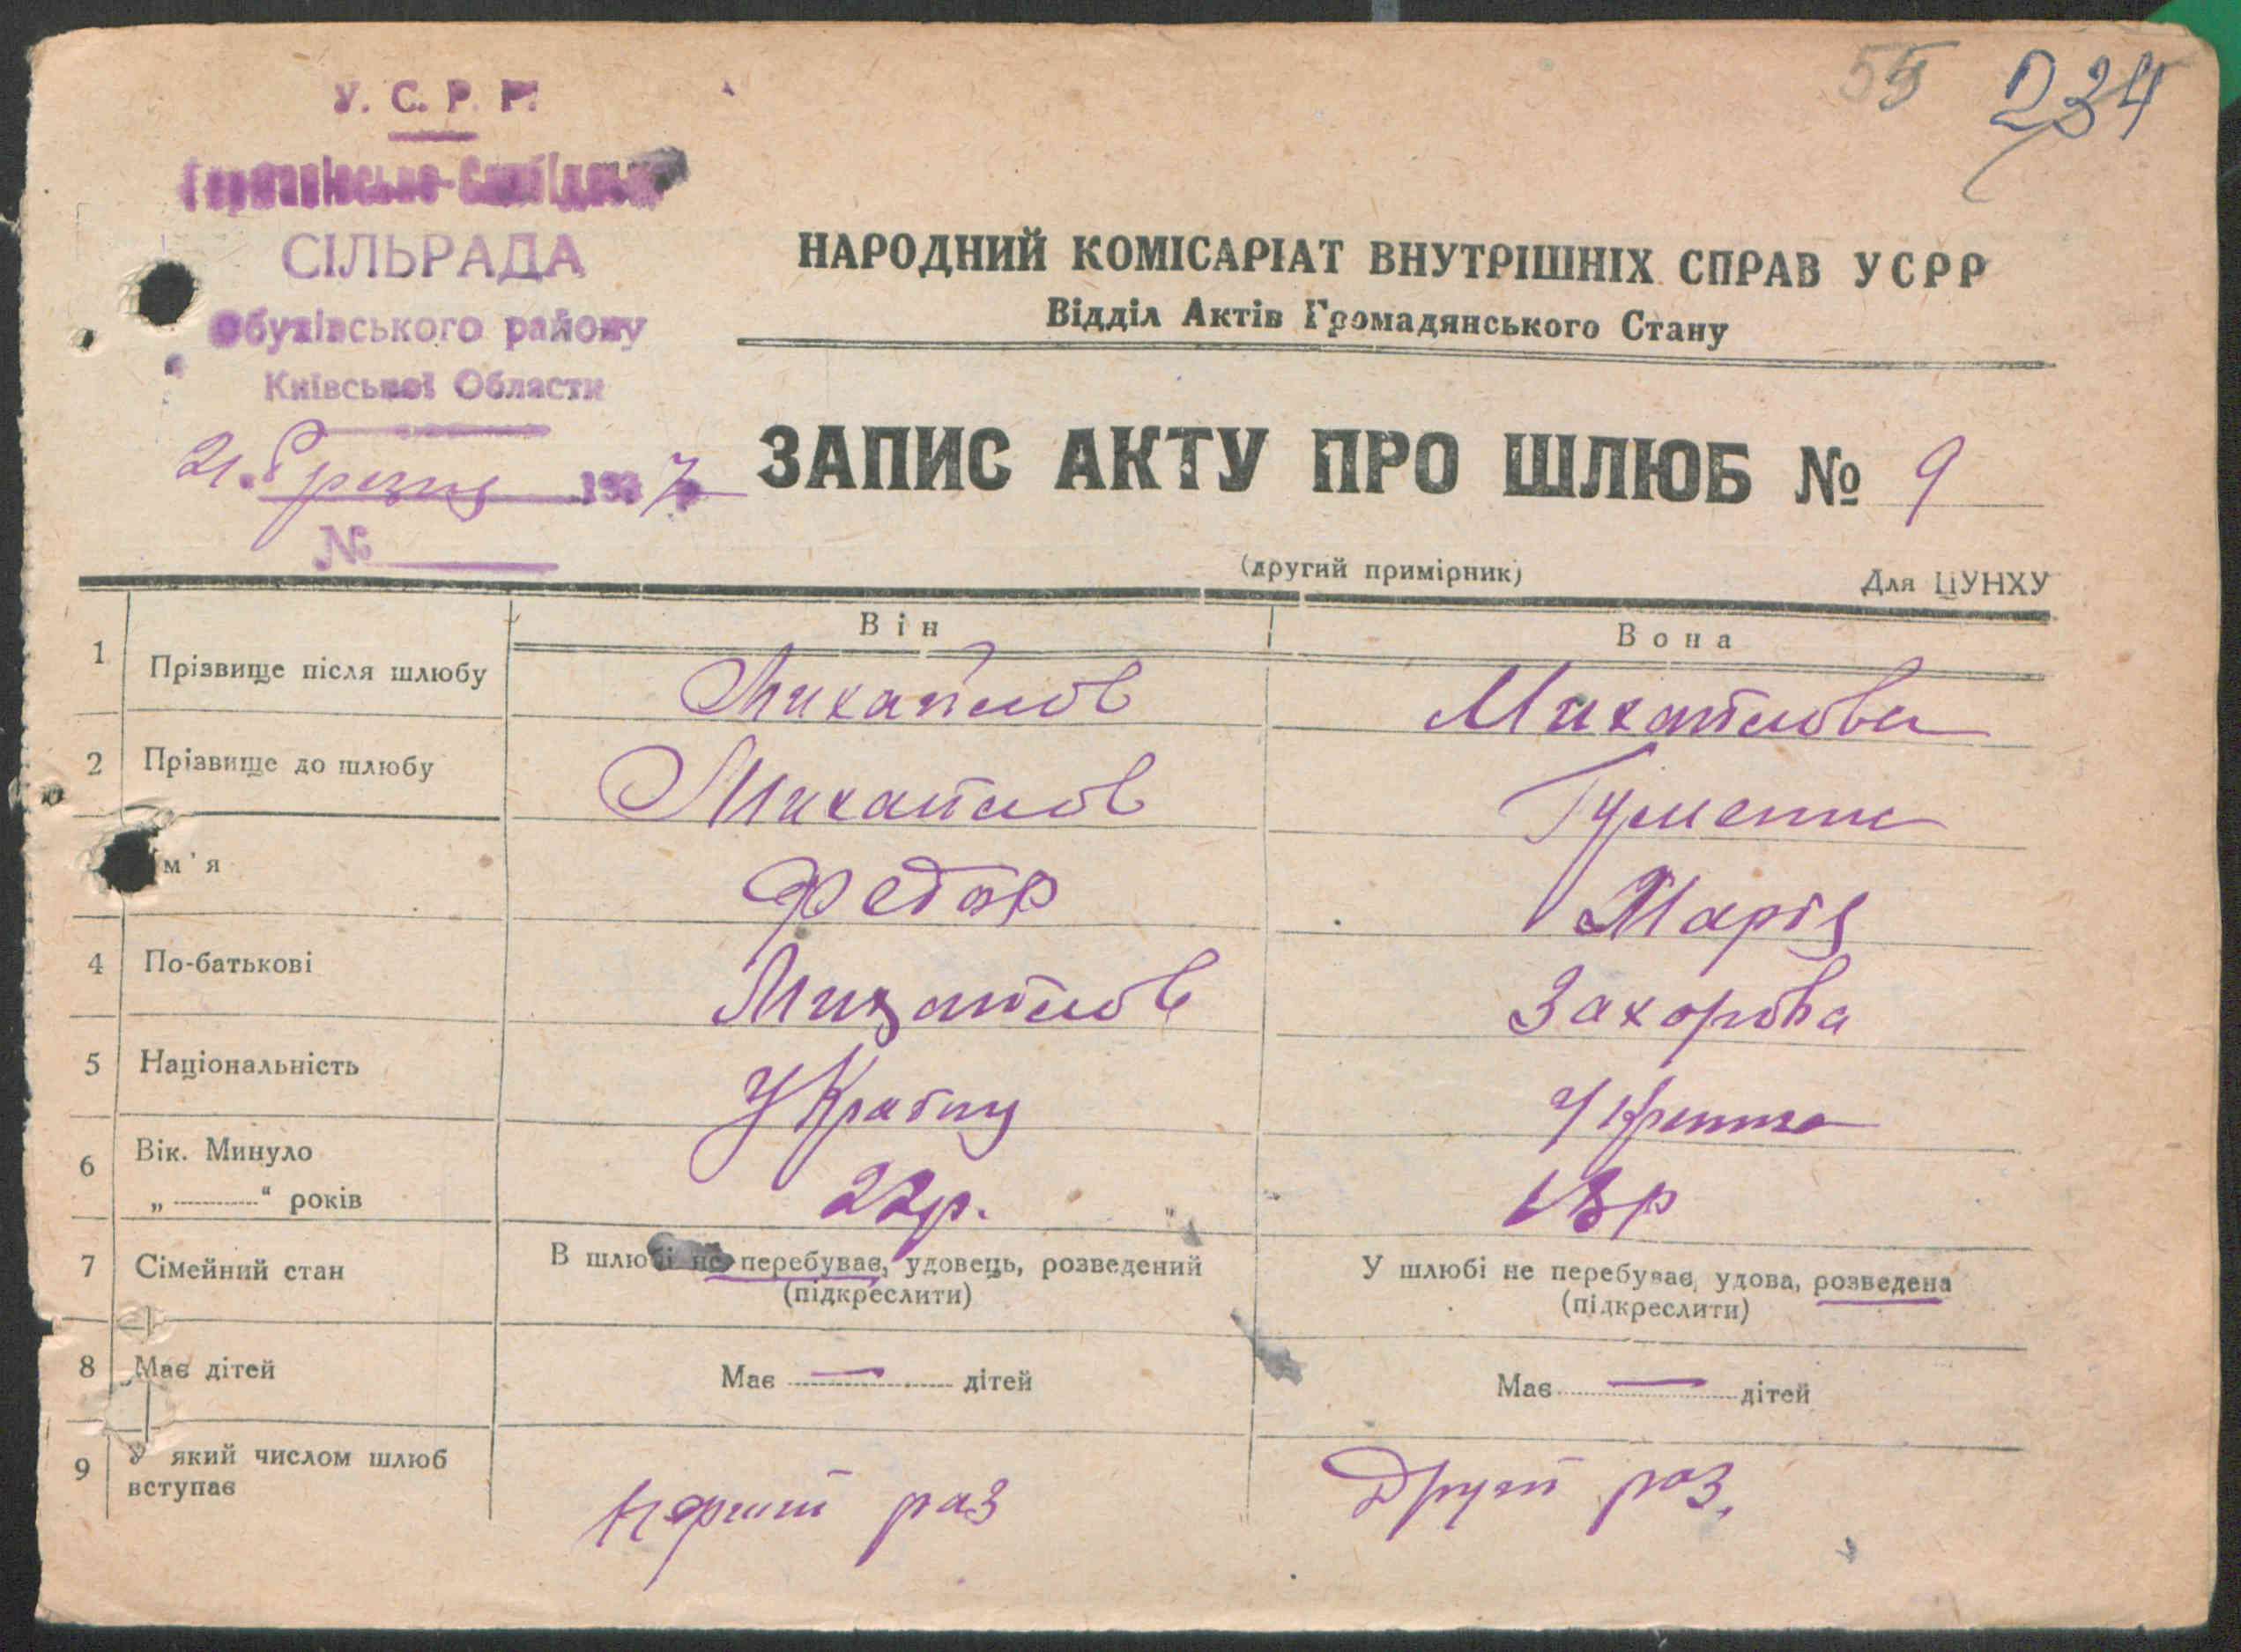 55 234
У. С. Р. Р.
СІЛЬРАДА
Обухівського району
Київської Области
21. Серпня 1937
№
НАРОДНИЙ КОМІСАРІАТ ВНУТРІШНІХ СПРАВ УСРР
Відділ Актів Громадянського Стану
ЗАПИС АКТУ ПРО ШЛЮБ № 9
(другий примірник) Для ЦУНХУ
Він Вона
1 Прізвище після шлюбу Михайлов Михайлова
2 Прізвище до шлюбу Михайлов
м'я Федор Марія
4 По-батькові Михайлов Захорова
5 Національність
6 Вік. Минуло
„ ------ “ років 22р. 18р
7 Сімейний стан В шлюбі не перебуває, удовець, розведений У шлюбі не перебуває, удова, розведена
(підкреслити) (підкреслити)
8 Має дітей Має — дітей Має — дітей
9 У який числом шлюб вступає перший раз Другй раз.